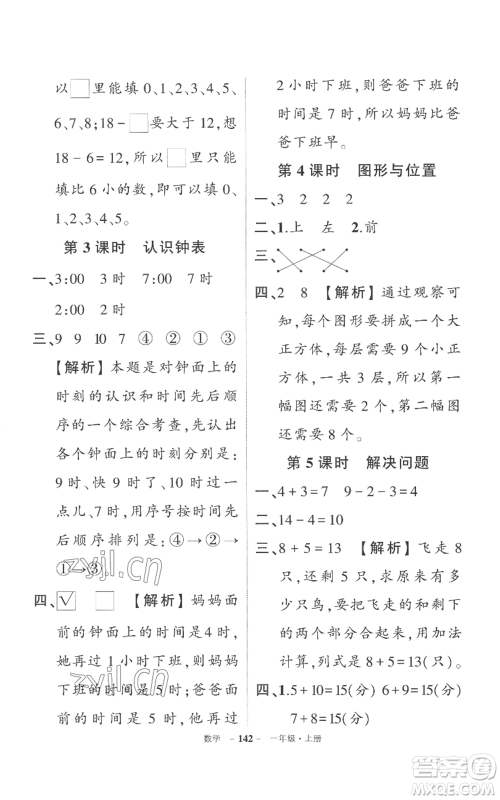 以□里能填 0、1、2、3、4、5、
6、7、8;18-□要大于 12,想
18-6=12,所以□里只能
填比 6 小的数,即可以填 0、
1、2、3、4、5。
第 3 课时 认识钟表
一、3:00 3 时 7:00 7 时
2:00 2 时
三、9 9 10 7 ④ ② ① ③
【解析】本题是对钟面上的
时刻的认识和时间先后顺
序的一个综合考查,先分别
写出四个钟面上的时刻,四
个钟面上的时刻分别是:
9 时、快 9 时、10 时、7 时过一
点儿、7 时,按照时间先
后顺序排列是:④→②→
①→③。
四、☑ □ 【解析】妈妈面
前的钟面上的时间是4 时,
她再过 1 小时下班,则妈妈
下班的时间是 5 时;爸爸面
前的时间是 5 时,再过
2 小时下班,则爸爸下班的
时间是 7 时,所以妈妈比爸
爸下班早。
第 4 课时 图形与位置
一、3 2 2 2
二、1.上 左 2.前
三、
四、2 8 【解析】通过观察可
知,每个图形要拼成一个大
正方体,需要 9 个小正方
体,一共 3 层,所以,第一
幅图还需要 2 个,第二幅图
还需要 8 个。
第 5 课时 解决问题
一、4+3=7 9-2-3=4
二、14-4=10
三、8+5=13 【解析】飞走 8
只,还剩 5 只,求原来有多
少只鸟,要把飞走的和剩下
的两部分合起来,用加法
计算,列式是 8+5=13。
四、1.5+10=15 6+9=15(可
7+8=15(可
数学 - 142 - 一年级·上册
zyjl.cn
zyjl.cn